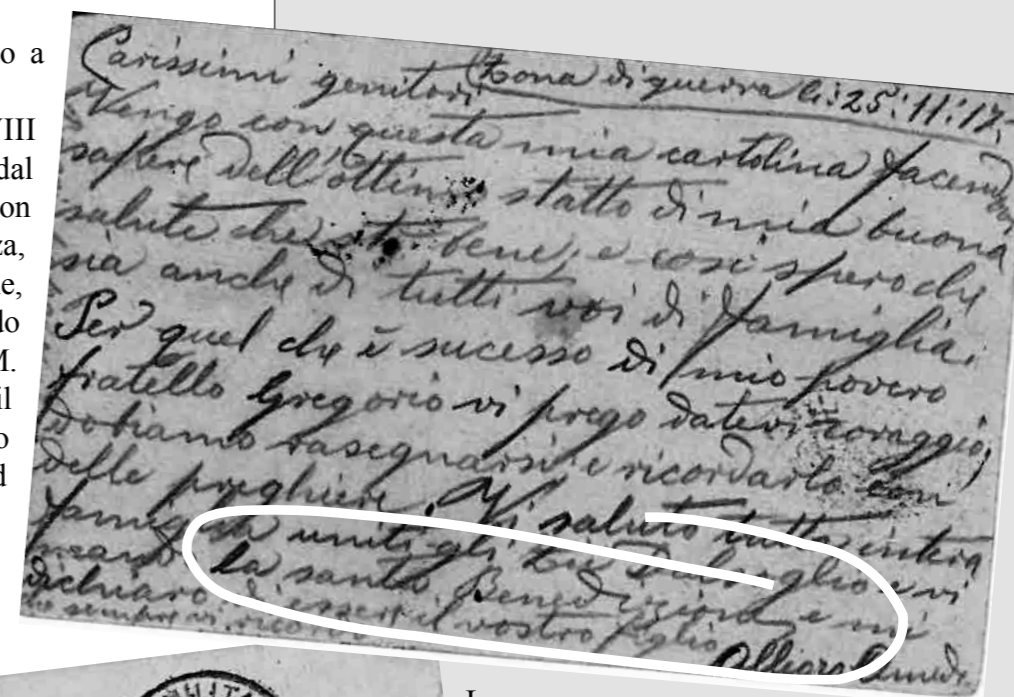 o a
VIII
dal
on
za,
e,
do
M.
il
o
d
Zona di guerra li: 25: 11: 17.
Carissimi genitori
Vengo con questa mia cartolina facendovi
sapere dell'ottimo statto di mia buona
salute che sto bene, e cosi spero che
sia anche di tutti voi di famiglia.
Per quel che è sucesso di mio povero
fratello Gregorio vi prego datevi coraggio,
dobiamo rasegnarsi e ricordarlo con
delle preghiere. Vi saluto tutta intera
famiglia uniti gli Zii e vi
la santa Benedizione e mi
dichiaro d'essere il vostro figlio
che sempre vi ricorda